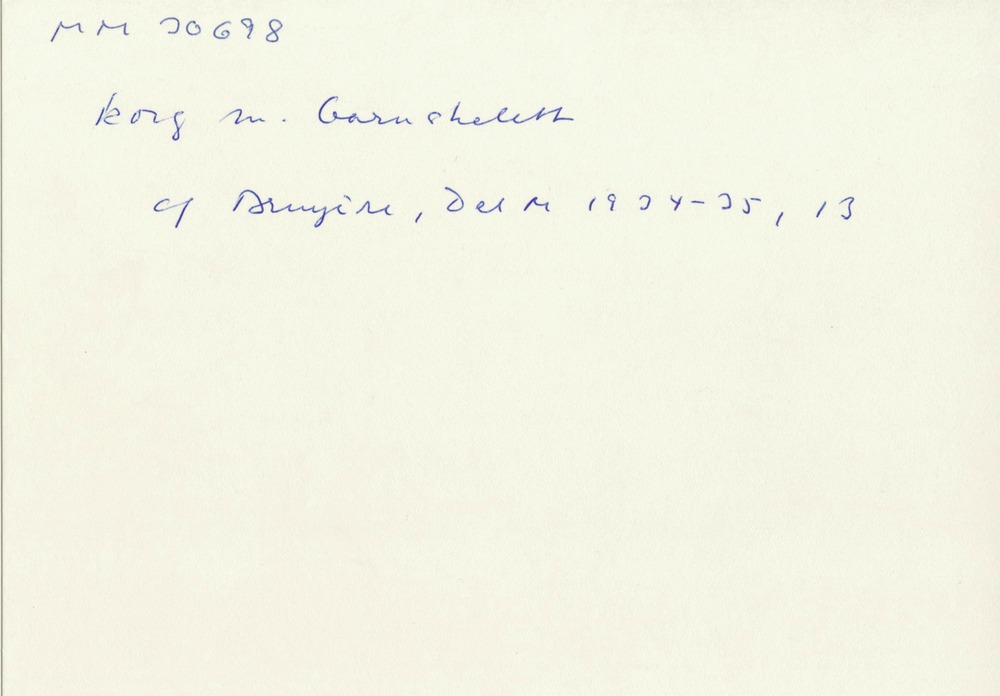 MM 30698
korg m. barnskelett
cf Bruyère, Del M 1934-35, 13